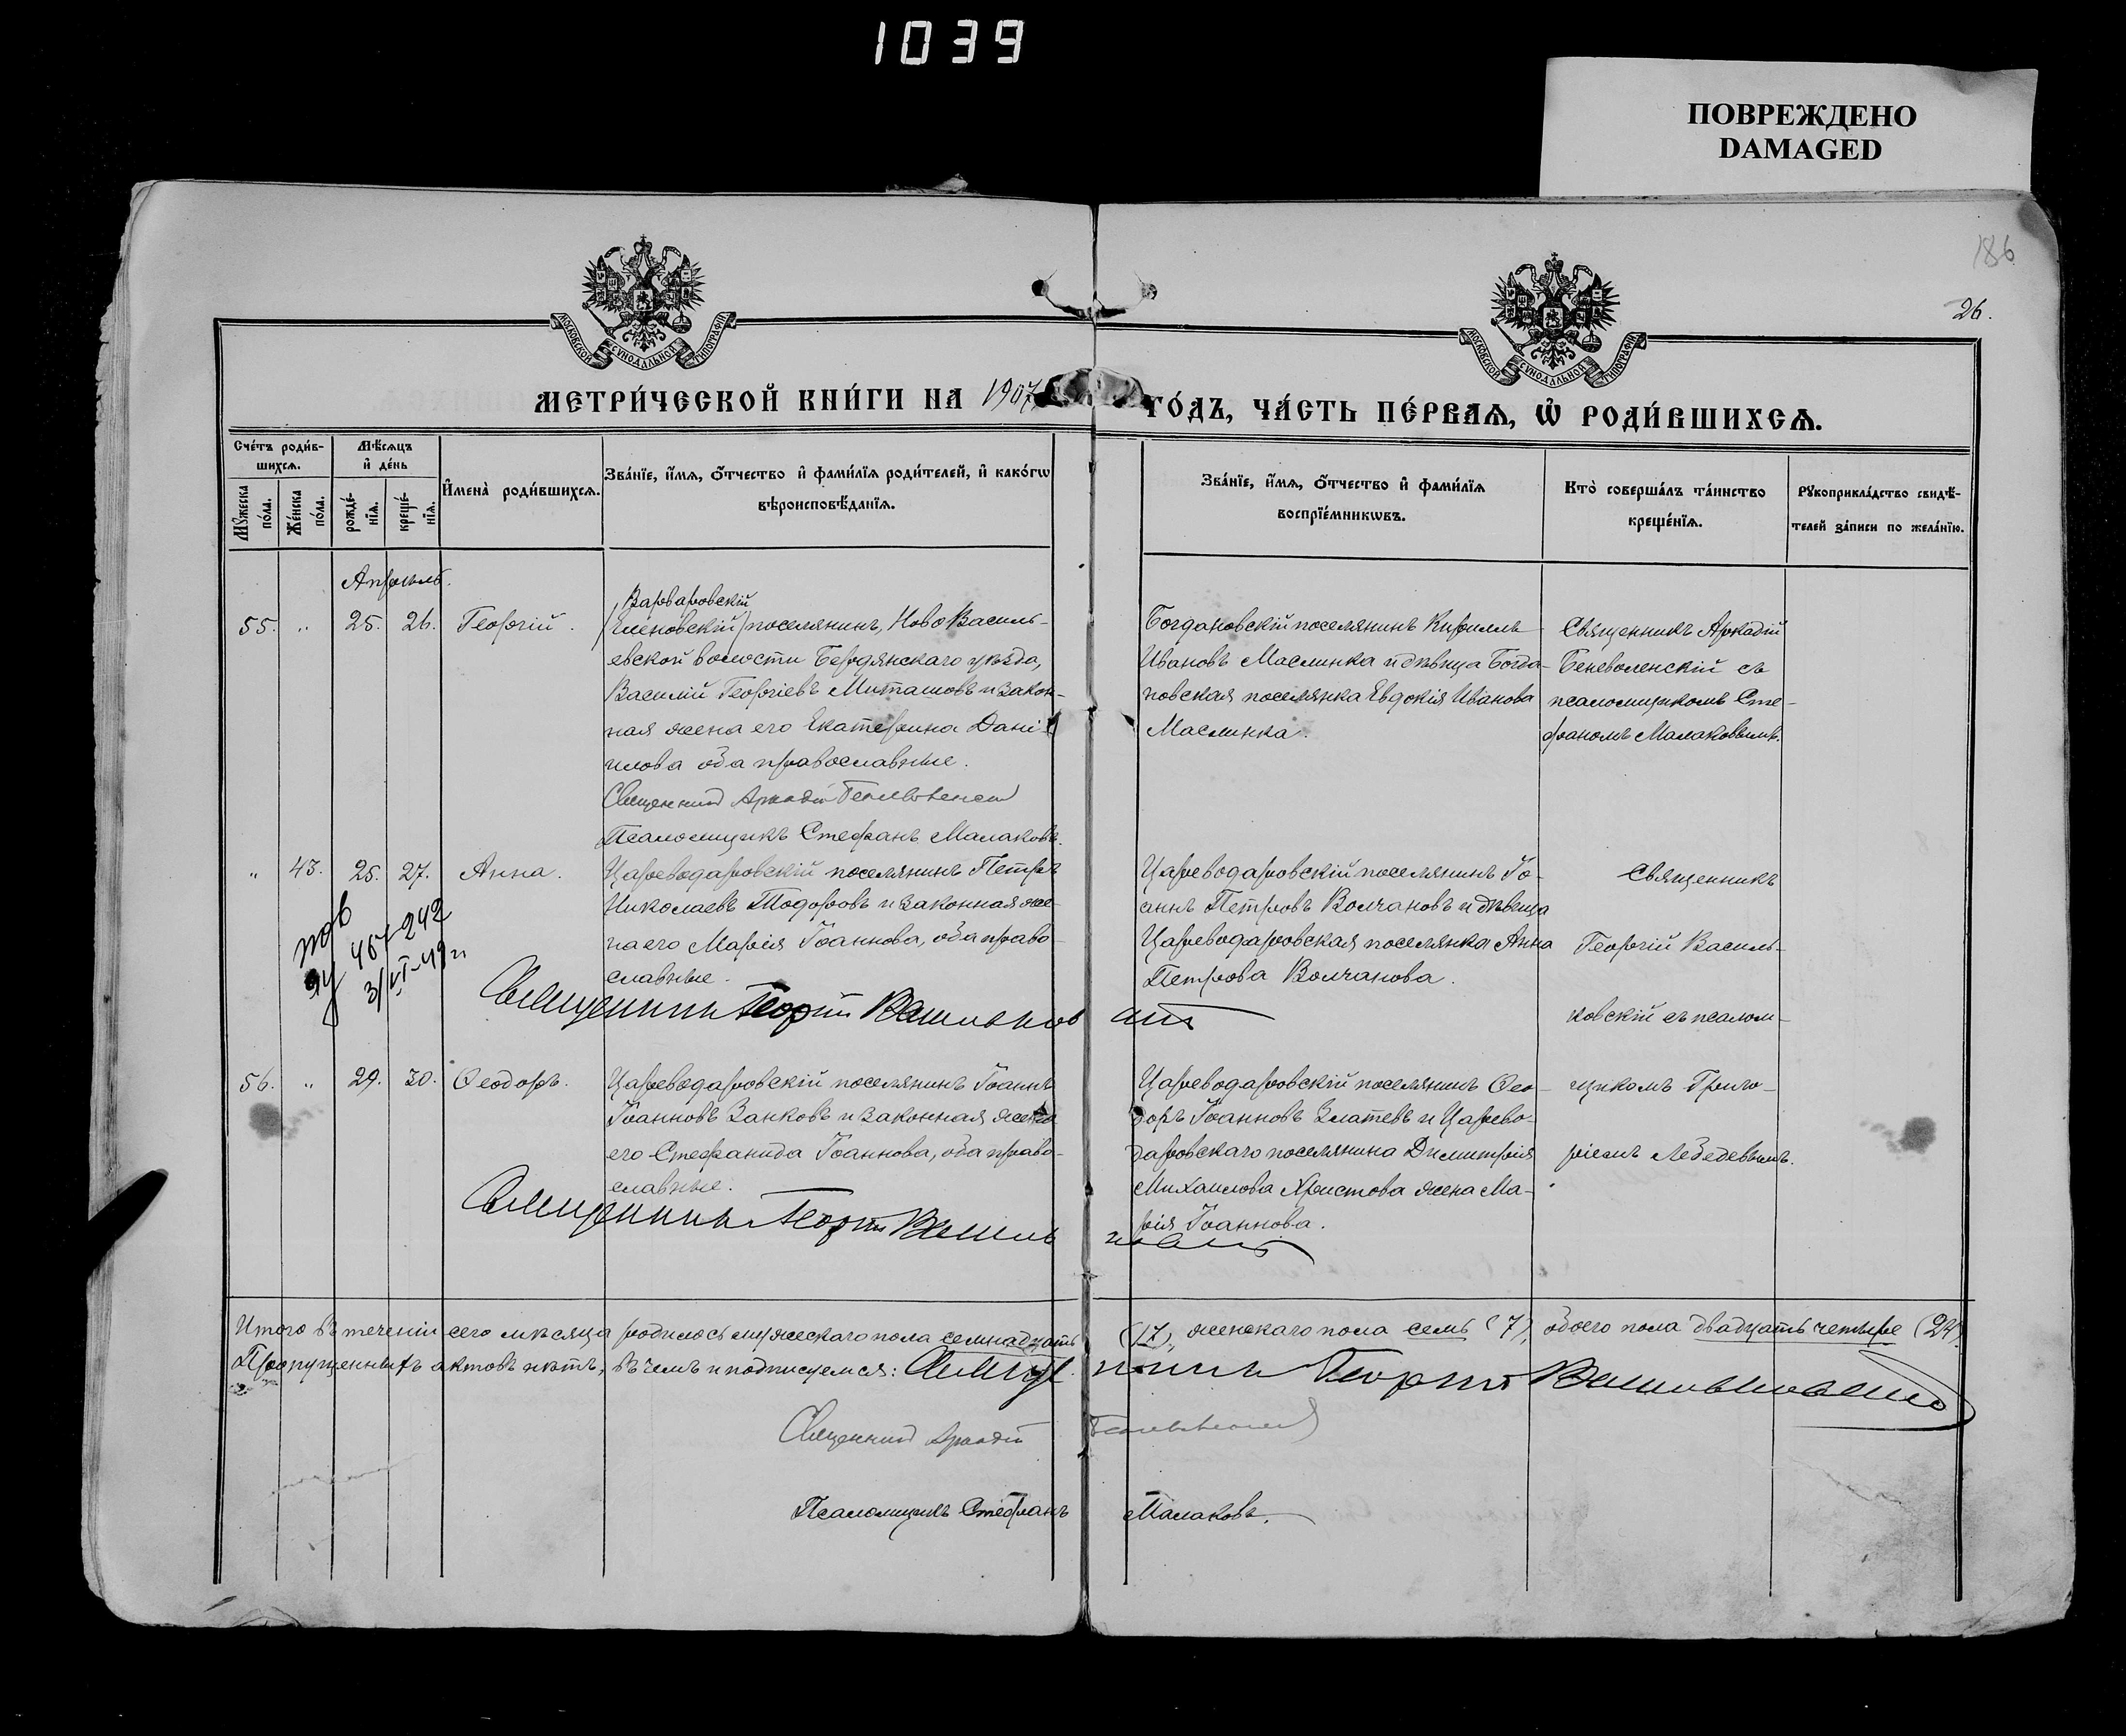 1039
ПОВРЕЖДЕНО
DAMAGED
186
26.
МОСКОВСКОЙ СѴНОДАЛЬНОЙ ТИПОГРАФІИ
МОСКОВСКОЙ СѴНОДАЛЬНОЙ ТИПОГРАФІИ
МЕТРИ́ЧЕСКОЙ КНИ́ГИ НА 1907
ГО́ДЪ, ЧА́СТЬ ПЕ́РВАѦ, Ѽ РОДИ́ВШИХСѦ.
Сче́тъ роди́в-
шихсѧ.
Мѣ́сѧцъ
и҆ де́нь
Мꙋ́жеска
по́ла.
Же́нска
по́ла.
рожде́-
нїѧ.
креще́-
нїѧ.
И҆мена̀ роди́вшихсѧ.
Зва́нїе, и҆́мѧ, ѻ҆́тчество и҆ фами́лїѧ роди́телей, и҆ како́гѡ
вѣроисповѣ́данїѧ.
Зва́нїе, и҆́мѧ, ѻ҆́тчество и҆ фами́лїѧ
воспрїе́мникѡвъ.
Кто̀ соверша́лъ та́инство
креще́нїѧ.
Рꙋкоприкла́дство свидѣ́-
телей за́писи по жела́нїю.
Апрѣль.
55. „ 25. 26. Георгій.
Варваровскій
(Еленовскій) поселянинъ, Ново Василь-
евской волости Бердянскаго уѣзда,
Василій Георгіевъ Миташовъ и закон-
ная жена его Екатерина Даніи-
илова оба православные.
Священникъ Аркадій Беневоленскій
Псаломщикъ Стефанъ Малаковъ.
Богдановскій поселянинъ Кириллъ
Ивановъ Маслинка и дѣвица Богда-
новская поселянка Евдокія Иванова
Маслинка.
Священникъ Аркадій
Беневоленскій съ
псаломщикомъ Сте-
фаномъ Малаковымъ.
„ 43. 25. 27. Анна.
Цареводаровскій поселянинъ Петръ
Николаевъ Тодоровъ и законная же-
на его Марія Іоаннова, оба право-
славные.
Священникъ Георгій Васильковскій
Цареводаровскій поселянинъ Іо-
аннъ Петровъ Волчановъ и дѣвица
Цареводаровская поселянка Анна
Петрова Волчанова.
Священникъ
Георгій Василь-
ковскій съ псалом-
щикомъ Григо-
ріемъ Лебедевымъ.
242
3/VI-49 г
56. „ 29. 30. Ѳеодоръ.
Цареводаровскій поселянинъ Іоаннъ
Іоанновъ Занковъ и законная жена
его Стефанида Іоаннова, оба право-
славные.
Священникъ Георгій Васильковскій
Цареводаровскій поселянинъ Ѳео-
доръ Іоанновъ Златевъ и Царево-
даровскаго поселянина Димитрія
Михаилова Христова жена Ма-
рія Іоаннова.
Итого въ теченіи сего мѣсяца родилось мужескаго пола семнадцать (17), женскаго пола семь (7), обоего пола двадцать четыре (24).
Пропущенныхъ актовъ нѣтъ, въ чемъ и подписуемся: Священникъ Георгій Васильковскій
Священникъ Аркадій Беневоленскій
Псаломщикъ Стефанъ Малаковъ.